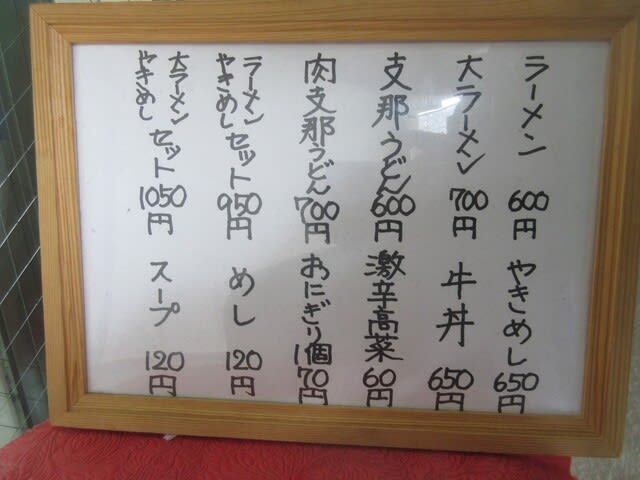 ラーメン 600円
大ラーメン 700円
支那うどん 600円
肉支那うどん 700円
ラーメン
やきめし セット 950円
大ラーメン
やきめし セット 1050円
やきめし 650円
牛丼 650円
激辛高菜 60円
おにぎり1個 70円
めし 120円
スープ 120円